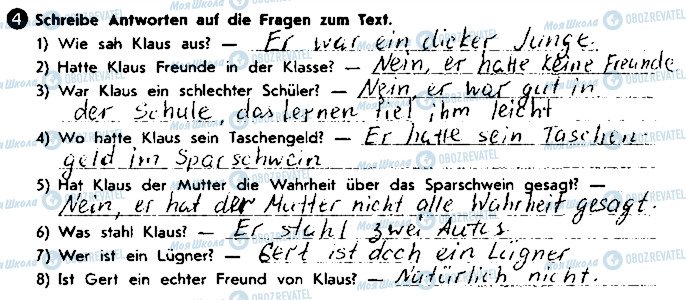 4 Schreibe Antworten auf die Fragen zum Text.
1) Wie sah Klaus aus? – Er war ein dicker Junge.
2) Hatte Klaus Freunde in der Klasse? – Nein, er hatte keine Freunde
3) War Klaus ein schlechter Schüler? – Nein, er war gut in
der Schule, das lernen fiel ihm leicht
4) Wo hatte Klaus sein Taschengeld? – Er hatte sein Taschen-
geld im Sparschwein
5) Hat Klaus der Mutter die Wahrheit über das Sparschwein gesagt? –
Nein, er hat der Mutter nicht alle Wahrheit gesagt.
6) Was stahl Klaus? – Er stahl zwei Autos
7) Wer ist ein Lügner? – Gert ist doch ein Lügner
8) Ist Gert ein echter Freund von Klaus? – Natürlich nicht.